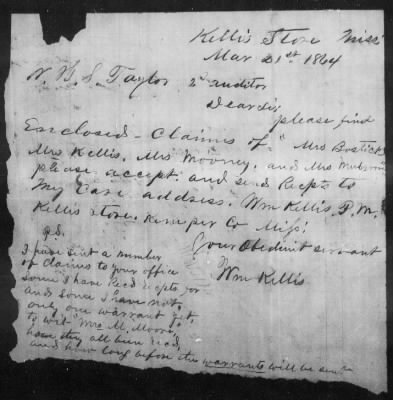 Kellis Store Miss
Mar 21st 1864
W. B. S. Taylor 2d auditor
Dear Sir
please find
Enclosed - Claims of "Mrs Bostick,
Mrs Kellis. Mrs Mooney. and Mrs
please accept and send Recpts to
my Care address. Wm Kellis P.M.
Kellis Store. Kemper Co Miss.
Your Obedient servant
Wm Kellis
P.S.
I have sent a number
of claims to your office
some I have Recd recpts for
and some I have not,
only one warrant yet,
to wit "Mrs M. Moore,
have they all been recd,
and how long before the warrants will be sent